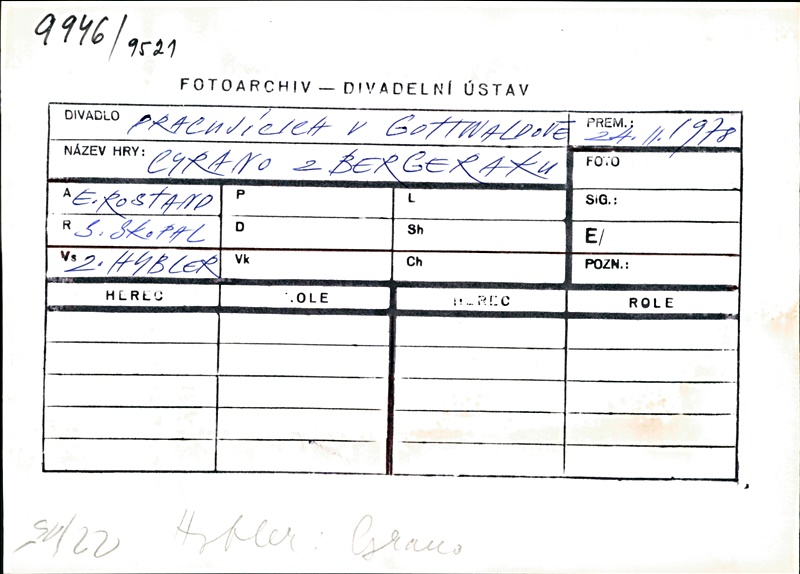 9946/9521
FOTOARCHIV — DIVADELNÍ ÚSTAV
DIVADLO PRACUJÍCICH V GOTTWALDOVĚ
PREM.: 24. 11. 1978
NÁZEV HRY: CYRANO Z BERGERAKU
FOTO
A E. ROSTAND
P
L
SIG.:
R S. SKOPAL
D
Sh
E/
Vs Z. HYBLER
Vk
Ch
POZN.:
HEREC ROLE HEREC ROLE
Hybler: Cyrano